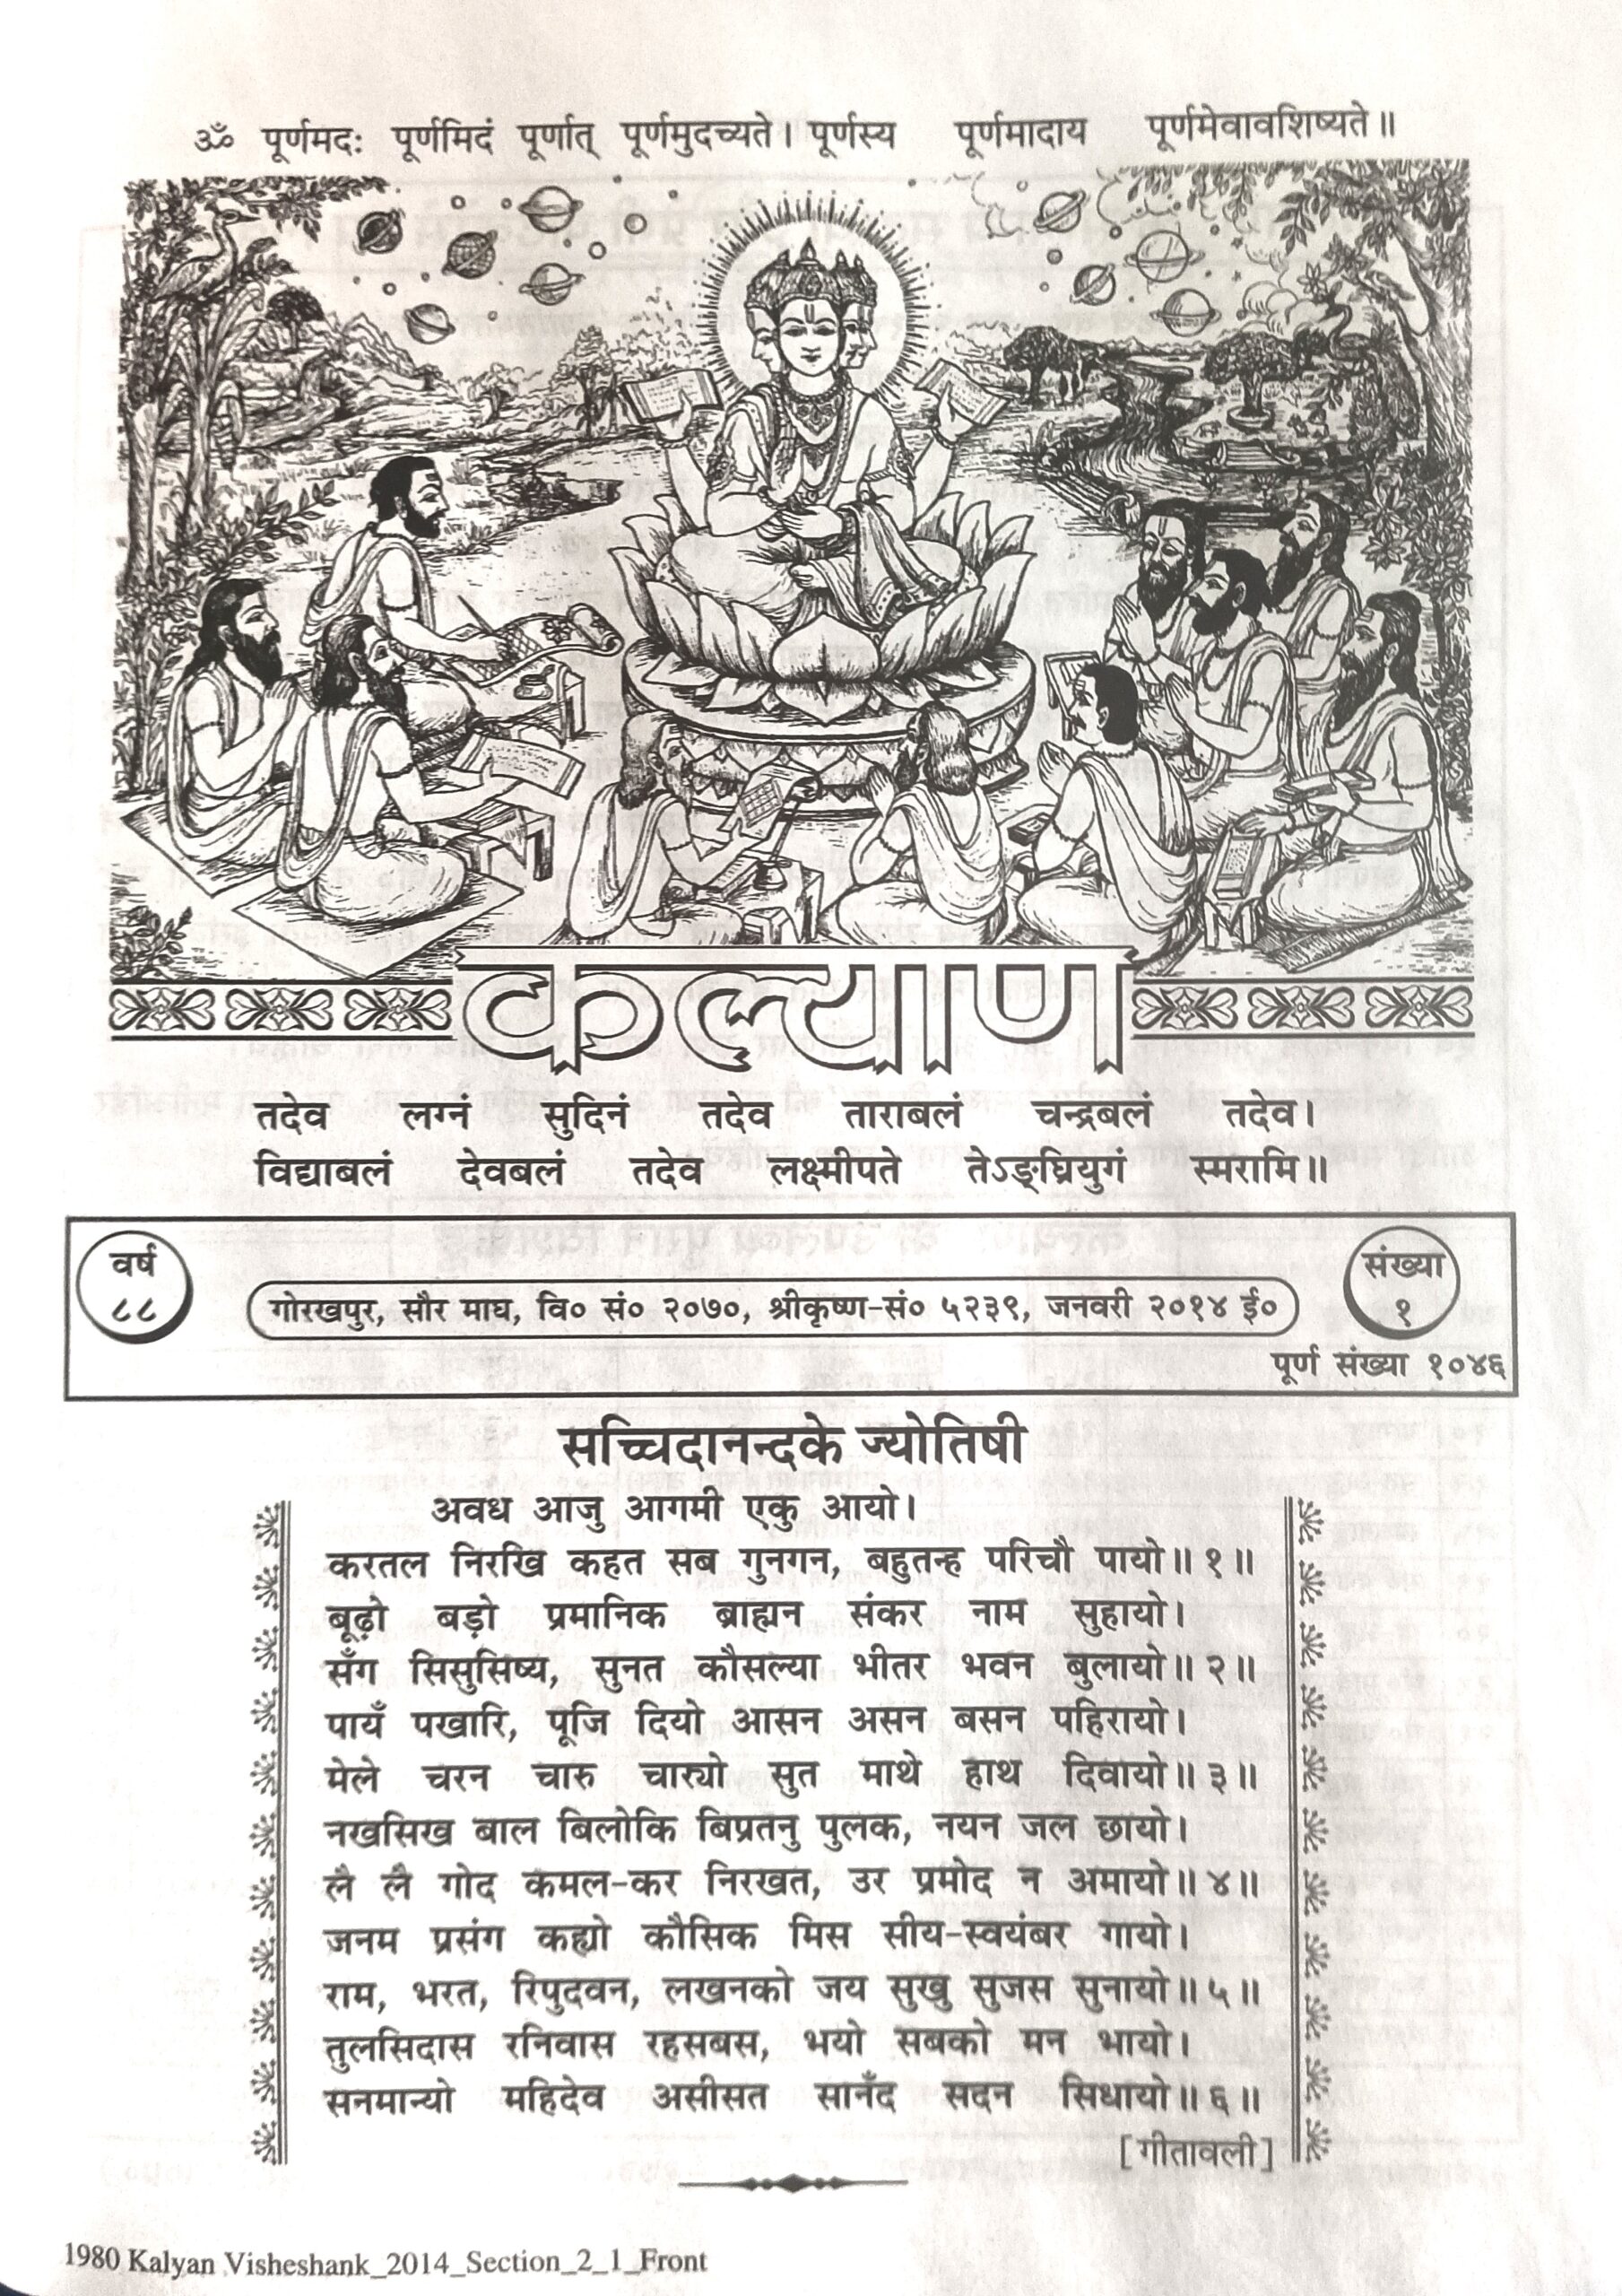 ॐ पूर्णमदः पूर्णमिदं पूर्णात् पूर्णमुदच्यते। पूर्णस्य पूर्णमादाय पूर्णमेवावशिष्यते॥
कल्याण
तदेव लग्नं सुदिनं तदेव ताराबलं चन्द्रबलं तदेव।
विद्याबलं देवबलं तदेव लक्ष्मीपते तेऽङ्घ्रियुगं स्मरामि॥
वर्ष
८८
गोरखपुर, सौर माघ, वि० सं० २०७०, श्रीकृष्ण-सं० ५२३९, जनवरी २०१४ ई०
संख्या
१
पूर्ण संख्या १०४६
सच्चिदानन्दके ज्योतिषी
अवध आजु आगमी एकु आयो।
करतल निरखि कहत सब गुनगन, बहुतन्ह परिचौ पायो॥ १॥
बूढ़ो बड़ो प्रमानिक ब्राह्मन संकर नाम सुहायो।
सँग सिसुसिष्य, सुनत कौसल्या भीतर भवन बुलायो॥ २॥
पायँ पखारि, पूजि दियो आसन असन बसन पहिरायो।
मेले चरन चारु चार्‌यो सुत माथे हाथ दिवायो॥ ३॥
नखसिख बाल बिलोकि बिप्रतनु पुलक, नयन जल छायो।
लै लै गोद कमल-कर निरखत, उर प्रमोद न अमायो॥ ४॥
जनम प्रसंग कह्यो कौसिक मिस सीय-स्वयंबर गायो।
राम, भरत, रिपुदवन, लखनको जय सुखु सुजस सुनायो॥ ५॥
तुलसिदास रनिवास रहसबस, भयो सबको मन भायो।
सनमान्यो महिदेव असीसत सानँद सदन सिधायो॥ ६॥
[गीतावली]
1980 Kalyan Visheshank_2014_Section_2_1_Front